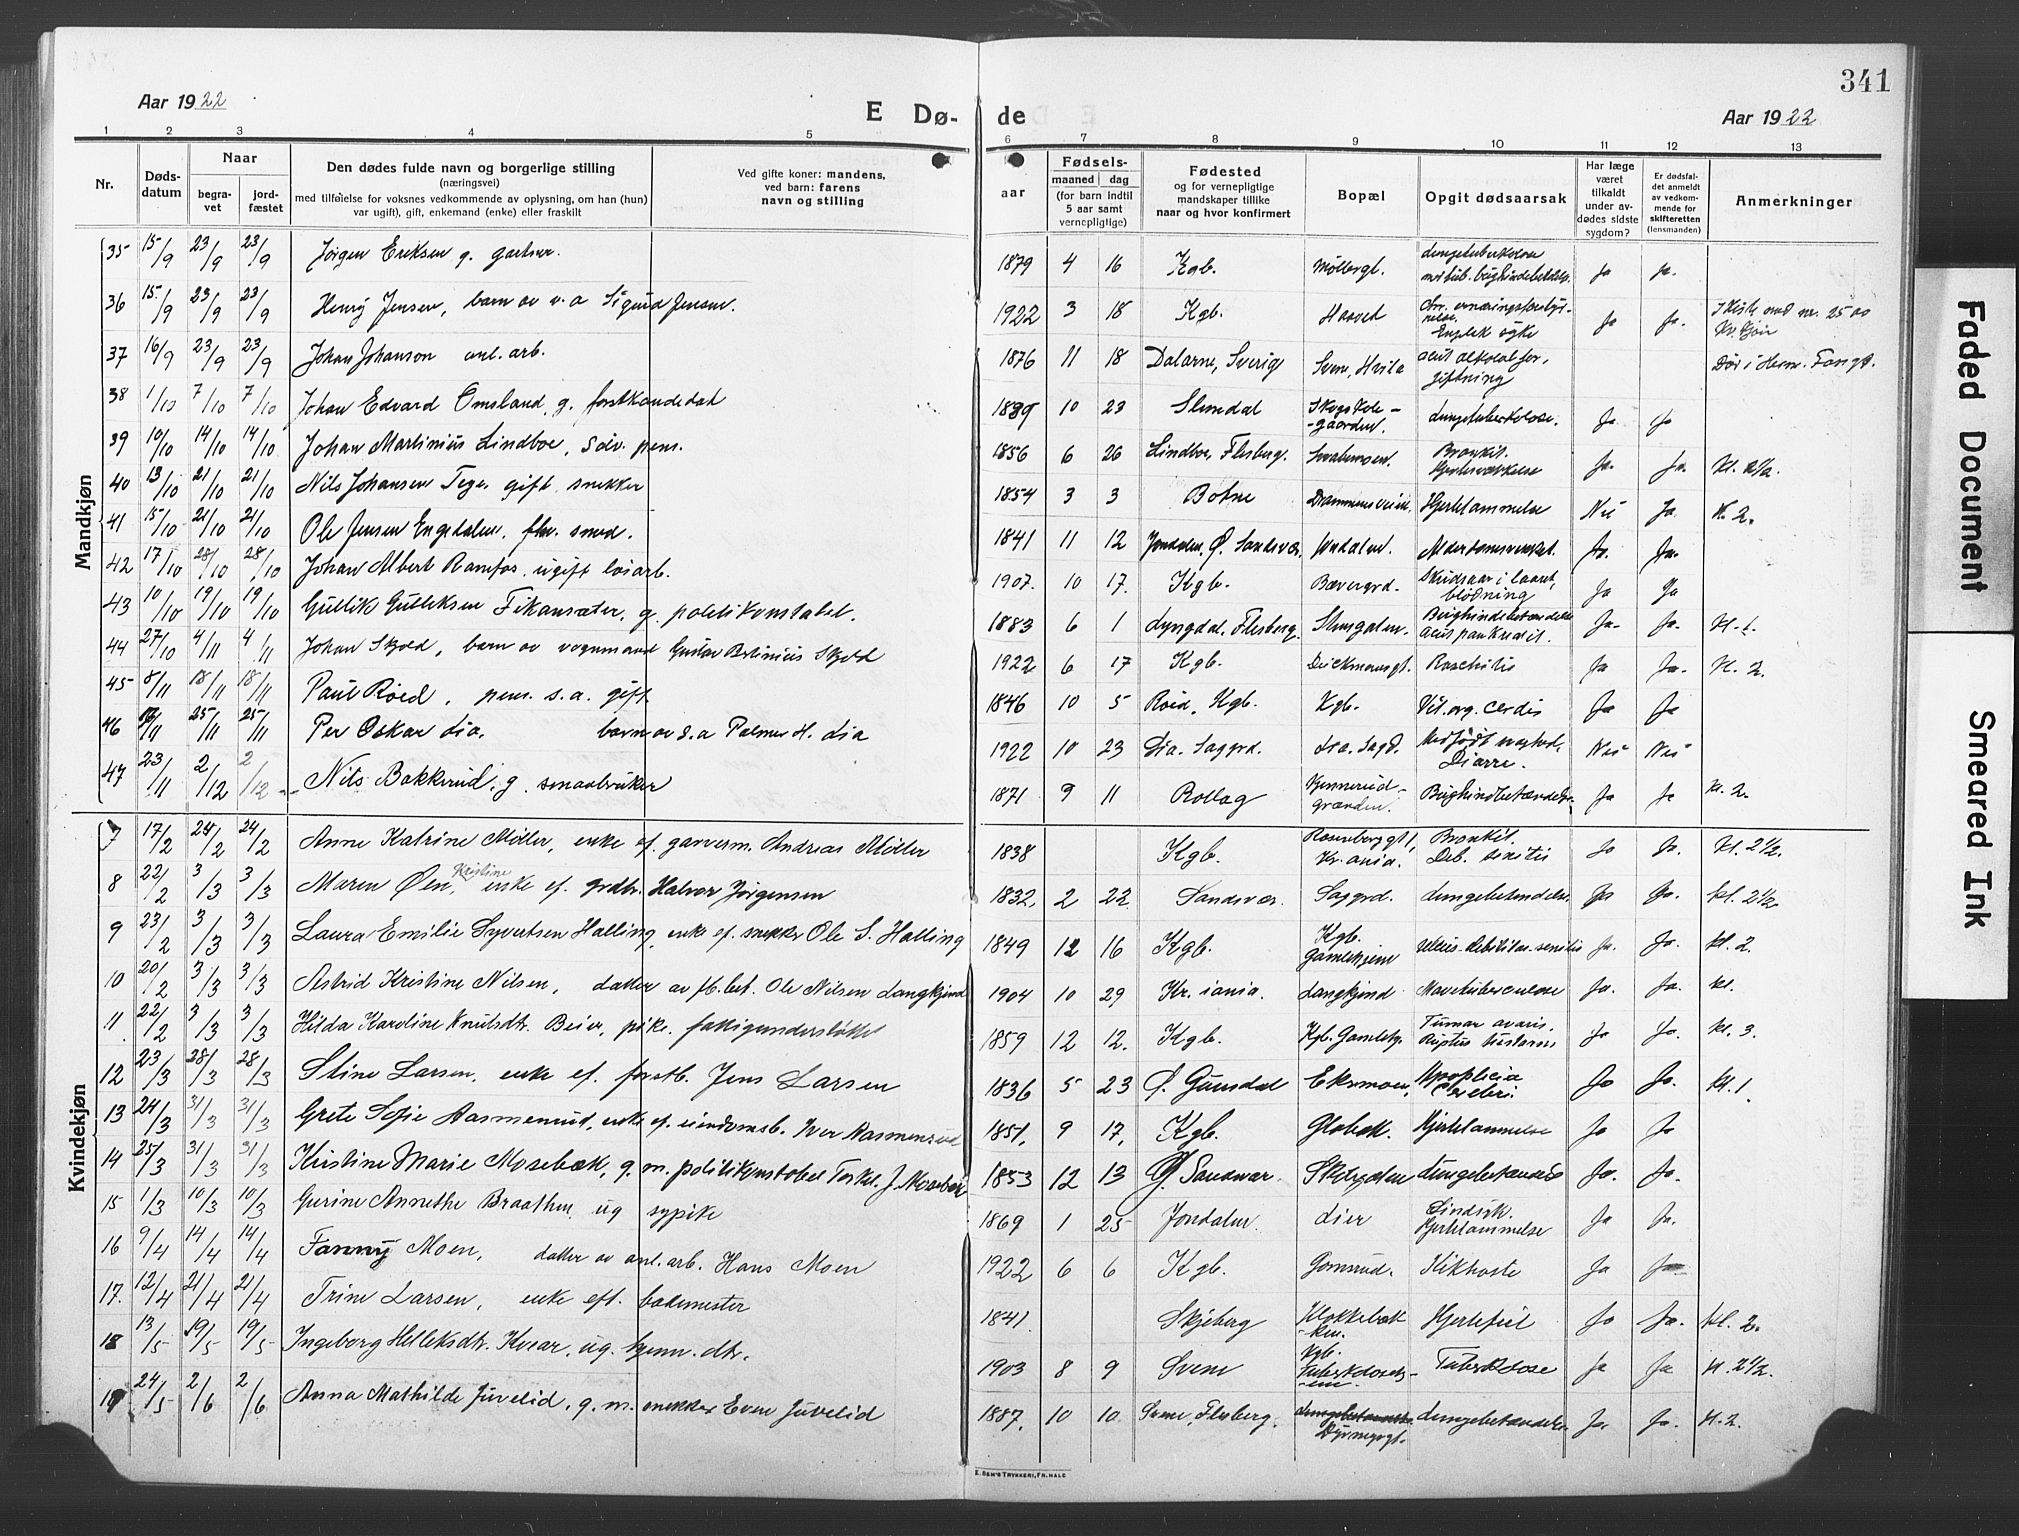 341
Aar 1922
E Dø-
de
Aar 1922
1 2 3 4 5 6 7 8 9 10 11 12 13
Nr.
Døds-
datum
Naar
begra-
vet
jord-
fæstet
Den dødes fulde navn og borgerlige stilling
(næringsvei)
med tilføielse for voksnes vedkommende av oplysning, om han (hun)
var ugift), gift, enkemand (enke) eller fraskilt
Ved gifte koner: mandens,
ved barn: farens
navn og stilling
aar
Fødsels-
maaned dag
(for barn indtil
5 aar samt
vernepligtige)
Fødested
og for vernepligtige
mandskaper tillike
naar og hvor konfirmert
Bopæl
Opgit dødsaarsak
Har læge
været
tilkaldt
under av-
dødes sidste
sygdom?
Er dødsfal-
det anmeldt
av vedkom-
mende for
skifteretten
(lensmanden)
Anmerkninger
Mandkjøn
35 15/9 23/9 23/9 Jørgen Eriksen g. gartner. 1879 4 16 Kgb. Møllergt. Lungetuberkulose ja ja.
36 15/9 23/9 23/9 Henry Jensen, barn av v.a Sigurd Jensen. 1922 3 18 Kgb. Hasset Engelsk syke Ja Ja.
37 16/9 23/9 23/9 Johan Johanson anl. arb. 1876 11 18 Dalarne, Sverig Svene, Hvila acut alkohol for,
giftning Død i Hem. Fangt.
38 1/10 7/10 7/10 Johan Edvard Omsland, g. forstkandedat 1889 10 23 Slemdal Lungetuberkulose. Ja Ja
39 10/10 14/10 14/10 Johan Martinius Lindboe, Sølv. pens. 1856 6 26 Lindboe, Flesberg. Bronkit. Ja. Ja. Kl. 2½.
40 13/10 21/10 21/10 Nils Johansen Tege, gift, snekker 1854 3 3 Botne Drammensveien. Hjertelammelse Nei Ja. Kl. 2.
41 15/10 21/10 21/10 Ole Jensen Engedalen, fhv. smed. 1841 11 12 Jondalen, Ø. Sandsvær. Jondalen. Ja. Ja.
42 17/10 28/10 28/10 Johan Albert Ramfos, ugift løsarb. 1907. 10 17. Kgb. Bævergrd. Skudsaar i laaret,
blødning Ja Ja
43 10/10 19/10 19/10 Gullik Gulliksen Fikansæter, g. politikonstabel. 1883 6 1 Lyngdal, Flesberg. Bughindebetændelse
acut pankredit. Ja. Ja. Kl. 1.
44 27/10 4/11 4/11 Johan Skjold, barn av vognmand Gustav Bertinius Skjold 1922 6 17 Kgb. Dickmansgt. Rachitis Ja Ja. Kl. 2.
45 8/11 18/11 18/11 Paul Røed, pens. s.a. gift 1846 10 5 Røed, Kgb. Kgb. Vit. org. cordis Ja Ja
46 25/11 25/11 Per Oskar Lia. barn av s.a Palmer H. Lia 1922 10 23 Lia. Saggrd. Lia. Sagd. Diarre. Nei Nei
47 23/11 2/12 2/12 Nils Bakkerud, g. smaabruker 1871 9 11 Rollag Bughindbetændelse Ja Ja Kl. 2.
Kvindekjøn
7 17/2 24/2 24/2 Anne Katrine Møller, enke ef. garverm. Andreas Møller 1838 Kgb. Rosenberggt 1,
Kr.ania. Bronkit.
Deb. senilis Ja Ja. Kl. 2½.
8 22/2 3/3 3/3 Maren Kristine Øen, enke ef. grdbr. Halvor Jørgensen 1832. 2 22. Sandsvær. Saggrd. Lungebetændelse Ja Ja. Kl. 2½.
9 23/2 3/3 3/3 Laura Emilie Syvertsen Halling, enke ef. snekker Ole S. Halling 1849 12 16 Kgb. Kgb.
Gamlehjem Debilitas senilis Ja. Ja. Kl. 2.
10 20/2 3/3 3/3 Astrid Kristine Nilsen, datter av Ole Nilsen Langkjend 1904 10 29 Kr. iania. Langkjend Mavetuberculose Ja. Ja. Kl.
11 22/2 3/3 3/3 Hilda Karoline Knutsdtr. Beier, pike. fattigunderstøttet 1859 12 12. Kgb. Kgb. Gamlehj. Tumor ovaris. Ja Ja. Kl. 3.
12 23/3 28/3 28/3 Stine Larsen, enke ef. forstb. Jens Larsen 1836 5 23 Ø. Gunsdal Eksmoen, Apoplicia
cerebri. Ja Ja. Kl. 1.
13 24/3 31/3 31/3 Grete Sofie Aasmensrud, enke ef. eiendomsb. Iver Aasmensrud 1851. 9 17. Kgb. Glabak. Hjertelammelse Ja Ja
14 25/3 31/3 31/3 Kristine Marie Mosebæk, g. m. politikonstabel Torkel J. Mosebæk 1853 12 13 Ø. Sandsvær. Lungebetændelse Ja. Ja.
15 1/3 10/3 10/3 Gurine Annethe Braathen, ug sypike 1869 1 25 Jondalen. Lier Hjertelammelse Ja Ja.
16 9/4 14/4 14/4 Fanny Moen, datter av anl. arb. Hans Moen 1922 6 6 Kgb. Gomsrud. Kikhoste Ja Ja
17. 12/4 21/4 21/4 Trine Larsen, enke eft. bademester 1841. Skjeberg Klokkebak
-ken. Hjertefeil Ja Ja. Kl. 2.
18 13/5 19/5 19/5 Ingeborg Helleksdtr. ug. hjem. dtr. 1903 8 9 Svene Kgb.
Tuberkulosehj-
em. Tuberkulose Ja Ja Kl. 2½.
19 24/5 2/6 2/6 Anna Mathilde Juvelid, g. m. snekker Even Juvelid 1887. 10 10. Svene, Flesberg. Dyrmyrgt. Lungebetændelse. Ja. Ja. Kl. 2.
E. SEM'S TRYKKERI, FR. HALD
Faded Document
Smeared Ink